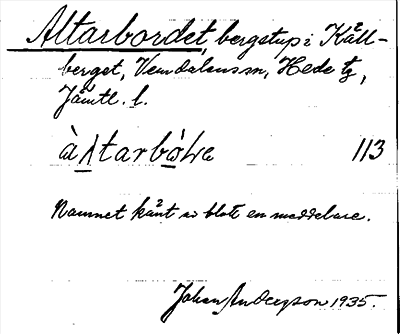 Altarbordet, bergstup i Käll-
berget, Vemdalens sn, Hede tg,
Jämtl. l.
àltarbo̱ḷe 113
Namnet känt av blott en meddelare.
Johan Anderzson 1935.